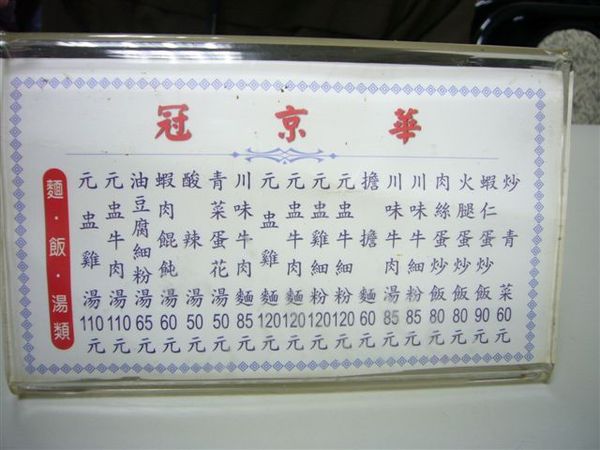 冠京華
麵・飯・湯類
元盅雞湯110元
元盅牛肉湯110元
油豆腐細粉65元
蝦肉餛飩60元
酸辣湯50元
青菜蛋花湯50元
川味牛肉麵85元
元盅雞麵120元
元盅牛肉麵120元
元盅雞細粉120元
元盅牛細粉120元
擔擔麵60元
川味牛肉湯85元
川味牛細粉85元
肉絲蛋炒飯80元
火腿蛋炒飯80元
蝦仁蛋炒飯90元
炒青菜60元